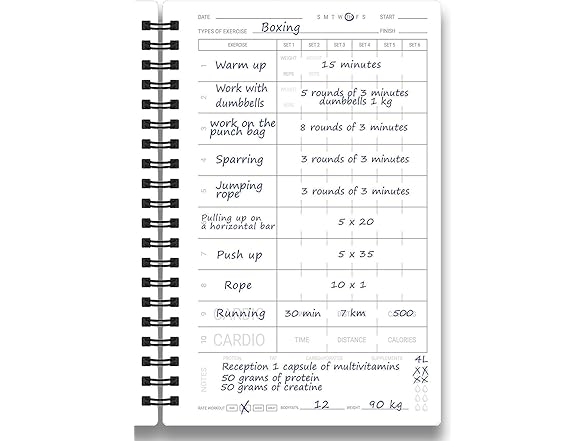 DATE S M T W TH F S START
TYPES OF EXERCISE Boxing FINISH
EXERCISE SET 1 SET 2 SET 3 SET 4 SET 5 SET 6
WEIGHT
REPS
1 Warm up 15 minutes
2 Work with dumbbells 5 rounds of 3 minutes
dumbbells 1 kg
3 work on the punch bag 8 rounds of 3 minutes
4 Sparring 3 rounds of 3 minutes
5 Jumping rope 3 rounds of 3 minutes
Pulling up on a horizontal bar 5 x 20
7 Push up 5 x 35
8 Rope 10 x 1
9 Running 30 min 7 km 500
10 CARDIO TIME DISTANCE CALORIES
PROTEIN FAT CARBOHYDRATES SUPPLEMENTS 4L
NOTES
Reception 1 capsule of multivitamins XX
50 grams of protein XX
50 grams of creatine
RATE WORKOUT X BODYFAT% 12 WEIGHT 90 kg